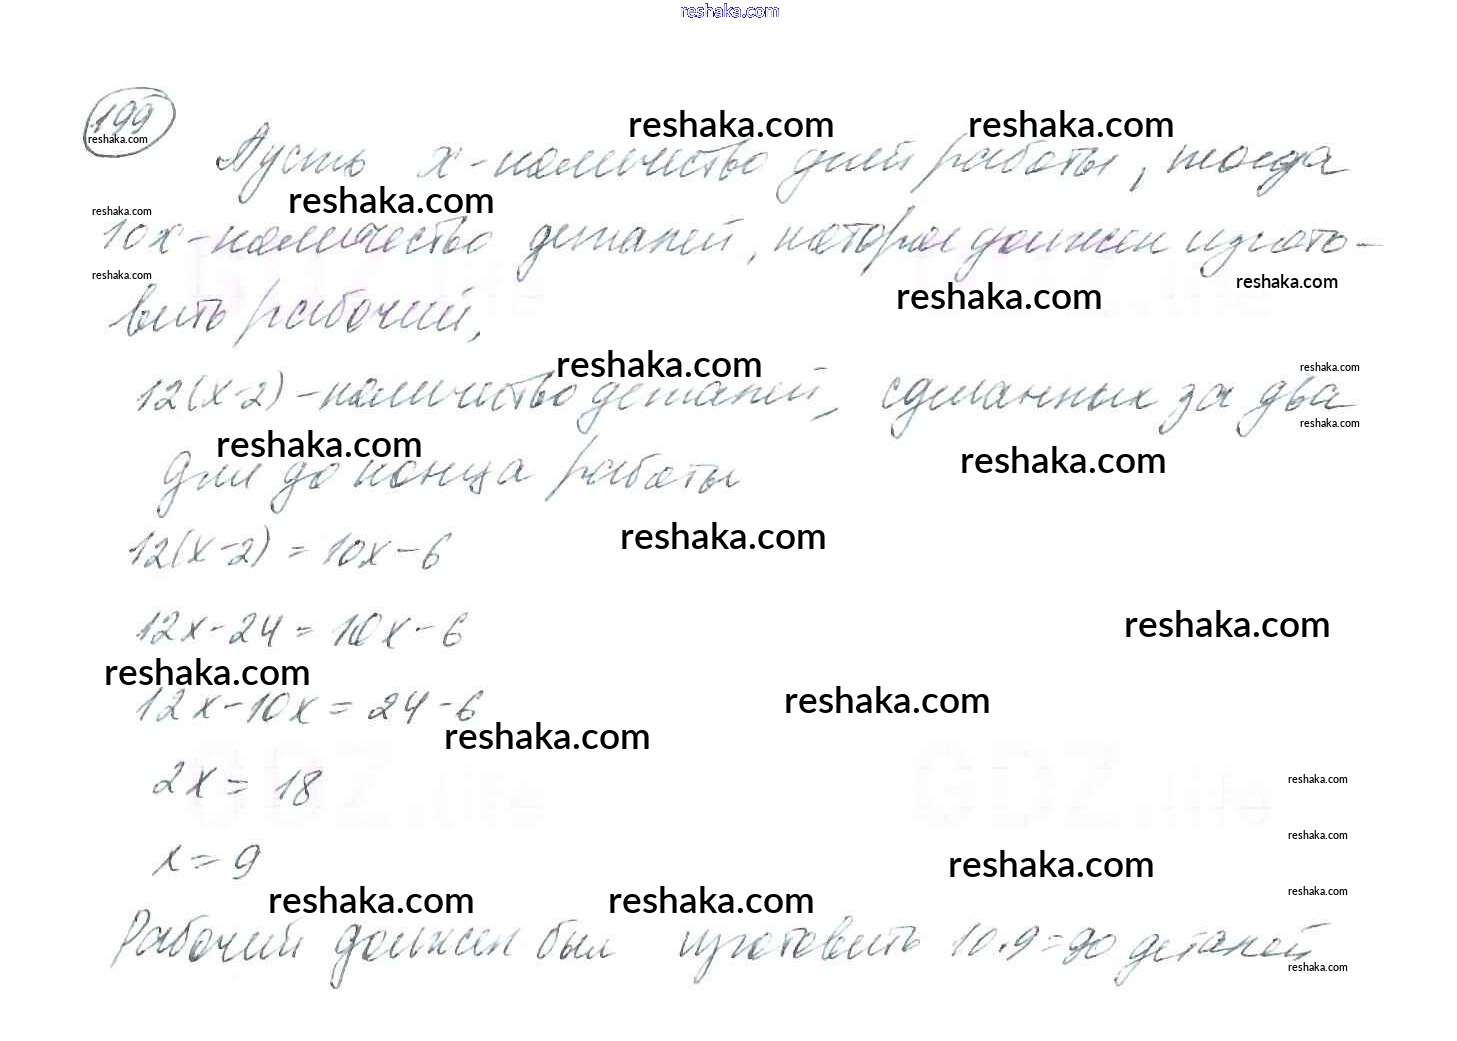 reshaka.com
199
reshaka.com
reshaka.com reshaka.com
Пусть x - количество дней работы, тогда
reshaka.com
reshaka.com
10x - количество деталей, которое должен изгото-
reshaka.com
reshaka.com
reshaka.com
вить рабочий,
reshaka.com
reshaka.com
12(x-2) - количество деталей, сделанных за два
reshaka.com
reshaka.com
reshaka.com
дня до конца работы
reshaka.com
12(x-2) = 10x - 6
reshaka.com
12x - 24 = 10x - 6
reshaka.com
reshaka.com
12x - 10x = 24 - 6
reshaka.com
2x = 18
reshaka.com
reshaka.com
x = 9
reshaka.com
reshaka.com
reshaka.com reshaka.com
Рабочий должен был изготовить 10·9=90 деталей
reshaka.com